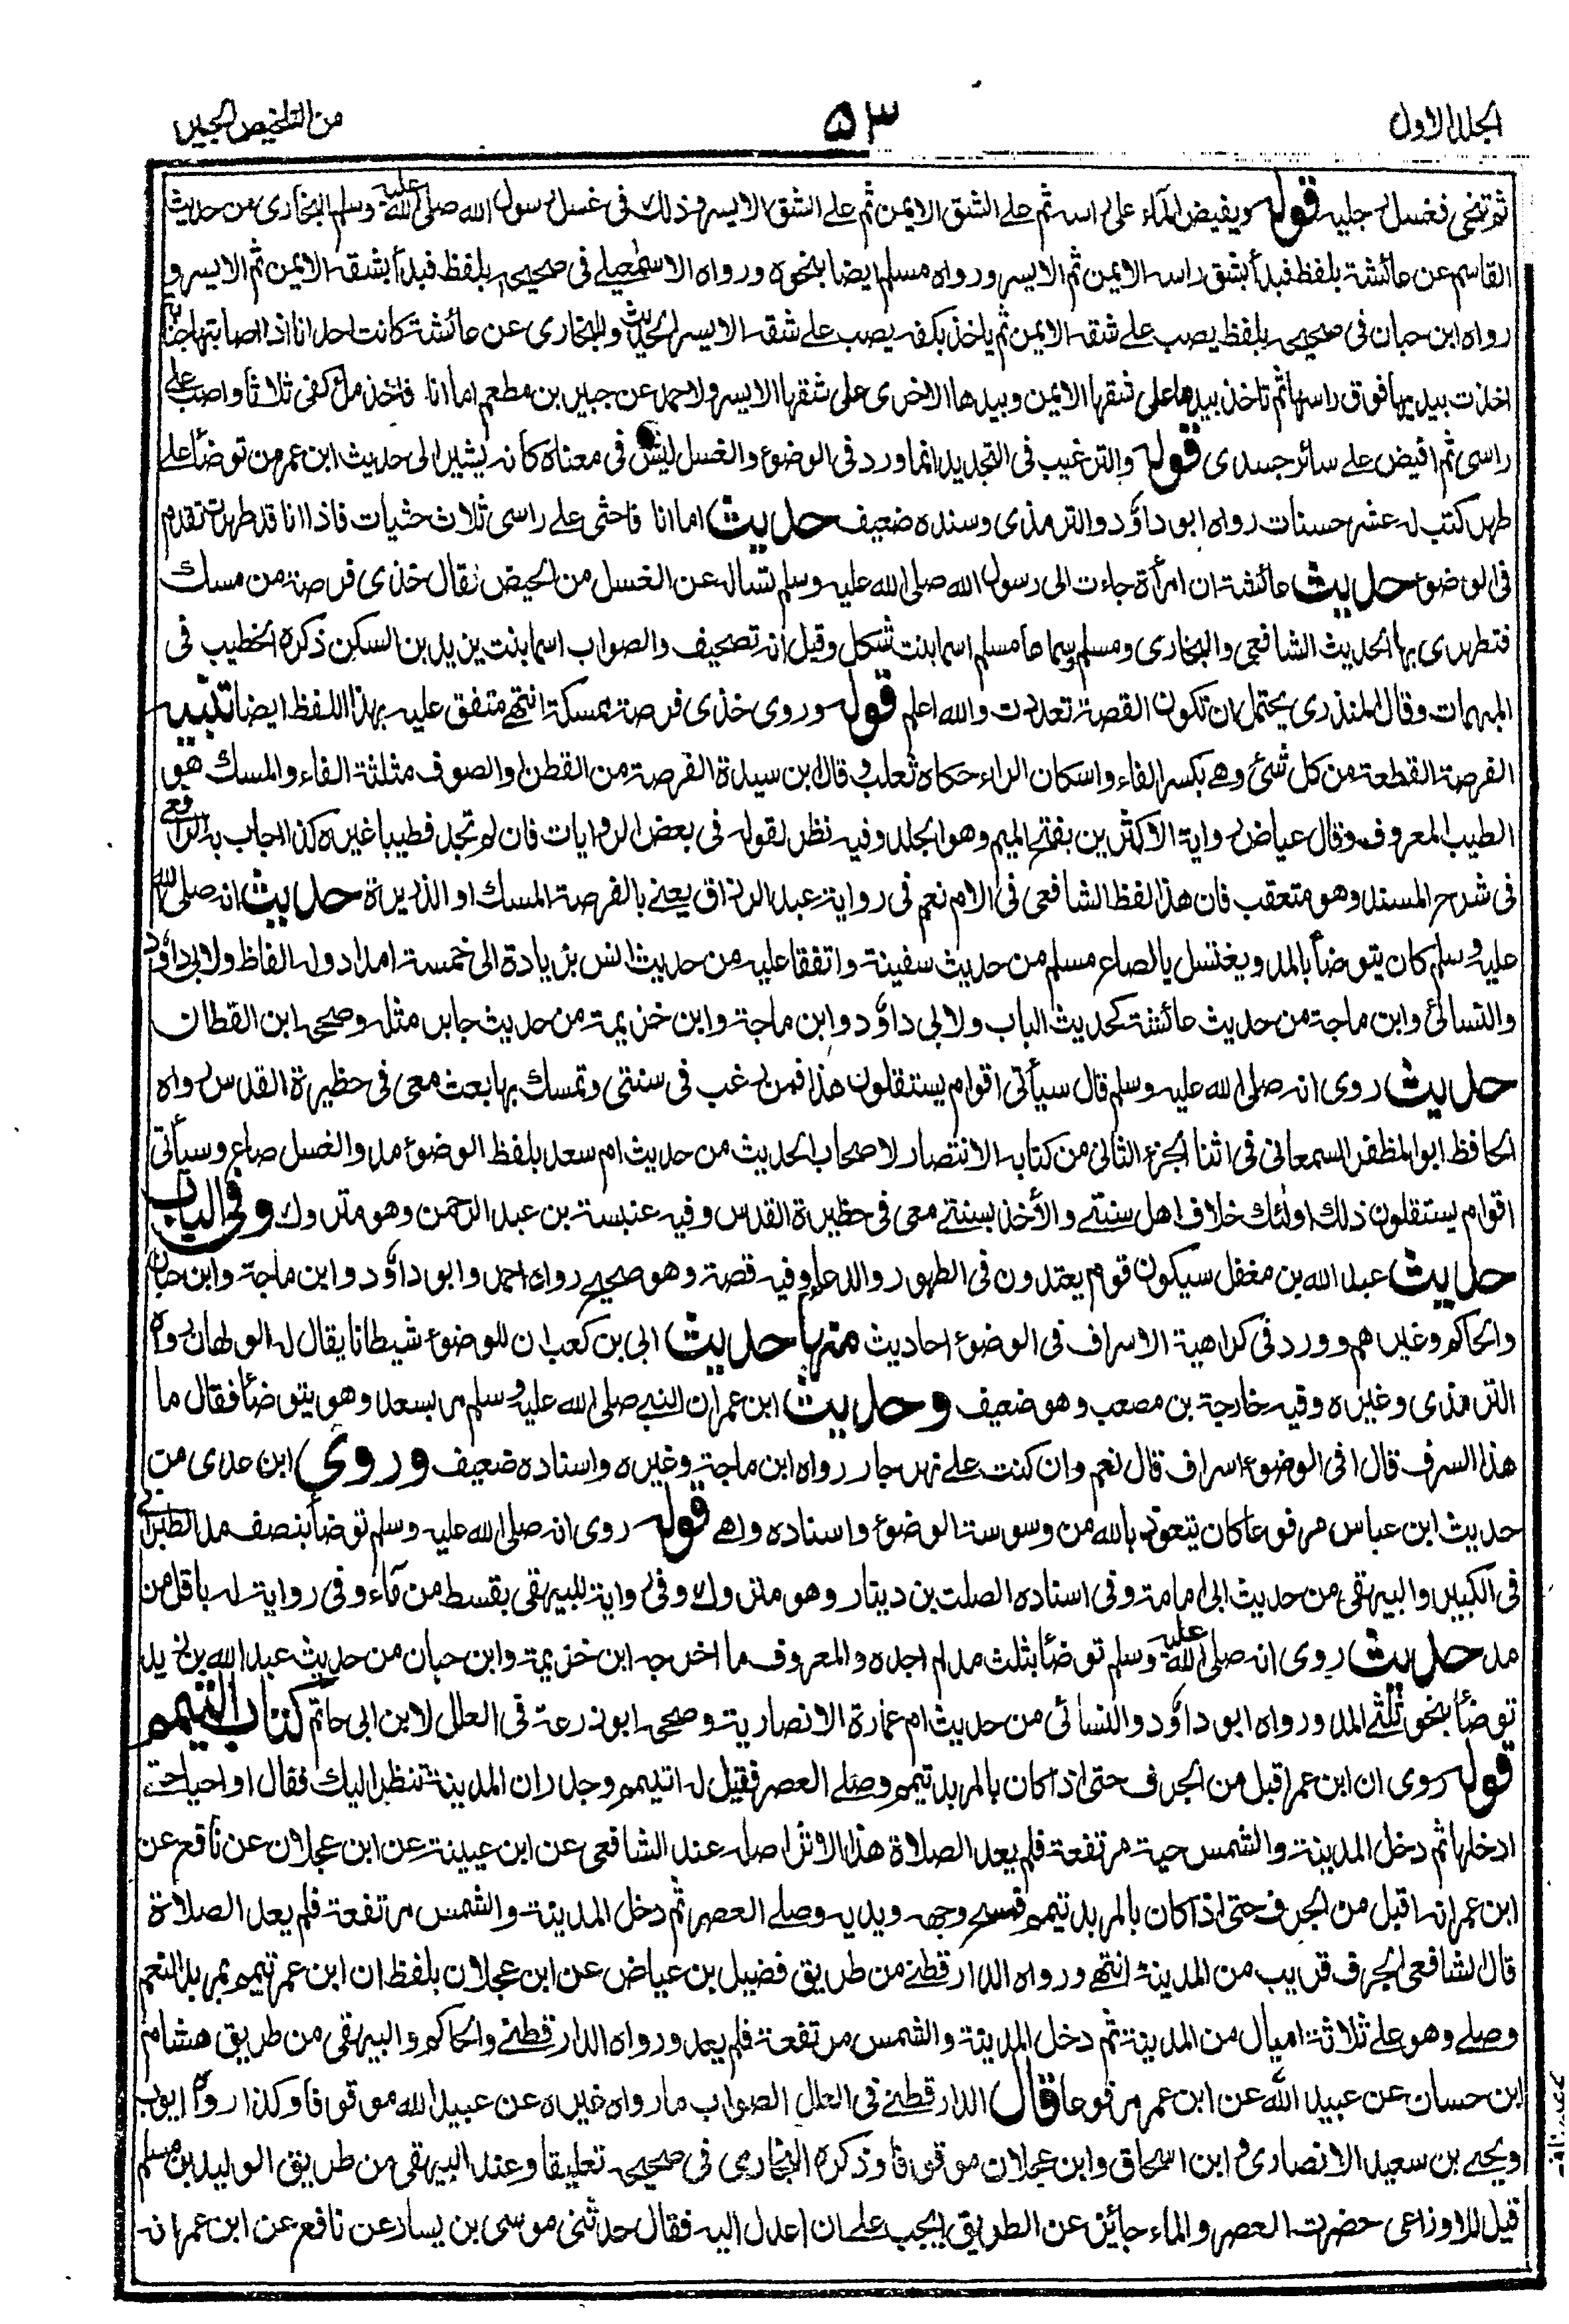 الجلد الاول
٥٣
من التلخيص الحبير
ثم تنحى فغسل رجليه قوله ويفيض الماء على راسه ثم على الشق الايمن ثم على الشق الايسر وذلك فى غسل رسول الله صلى الله عليه وسلم البخارى من حديث
القاسم عن عائشة بلفظ فبدأ بشق راسه الايمن ثم الايسر ورواه مسلم ايضا بنحوه ورواه الاسمعيلے فى صحيحه بلفظ فبدأ بشقه الايمن ثم الايسر و
رواه ابن حبان فى صحيحه بلفظ يصب علے شقه الايمن ثم ياخذ بكفه يصب علے شقه الايسر الحديث وللبخارى عن عائشة كانت احدانا اذا اصابتها جنابة
اخذت بيديها فوق راسها ثم تاخذ بيدها على شقها الايمن وبيدها الاخرى على شقها الايسر ولاحمد عن جبير بن مطعم اما انا فاخذ ملئ كفى ثلاثا واصب علے
راسى ثم افيض علے سائر جسدى قوله والترغيب فى التجديد انما ورد فى الوضوء والغسل ليس فى معناه كانه يشير الى حديث ابن عمر من توضأ علے
طهر كتب له عشر حسنات رواه ابو داؤد والترمذى وسنده ضعيف حديث اما انا فاحثى علے راسى ثلاث حثيات فاذا انا قد طهرت تقدم
فى الوضوء حديث عائشة ان امرأة جاءت الى رسول الله صلى الله عليه وسلم تسأله عن الغسل من الحيض فقال خذى فرصة من مسك
فتطهرى بها الحديث الشافعى والبخارى ومسلم وسماها مسلم اسما بنت شكل وقيل انه تصحيف والصواب اسما بنت يزيد بن السكن ذكره الخطيب فى
المبهمات وقال المنذرى يحتمل ان تكون القصة تعددت والله اعلم قوله وروى خذى فرصة ممسكة انتهے متفق عليه بهذا اللفظ ايضا تنبيه
الفرصة القطعة من كل شئ وهے بكسر الفاء واسكان الراء حكاه ثعلب و قال ابن سيدة الفرصة من القطن او الصوف مثلثة الفاء والمسك هو
الطيب المعروف وقال عياض رواية الاكثرين بفتح الميم وهو الجلد وفيه نظر لقوله فى بعض الروايات فان لم تجد فطيبا غيره كذا اجاب به الرافعے
فى شرح المسند وهو متعقب فان هذا لفظ الشافعى فى الام نعم فى رواية عبد الرزاق يعنے بالفرصة المسك او الذريرة حديث انه صلى الله
عليه وسلم كان يتوضأ بالمد ويغتسل بالصاع مسلم من حديث سفينة واتفقا عليه من حديث انس بزيادة الى خمسة امداد وله الفاظ ولابى داؤد
والنسائى وابن ماجة من حديث عائشة كحديث الباب ولابى داؤد وابن ماجة وابن خزيمة من حديث جابر مثله وصححه ابن القطان
حديث روى انه صلى الله عليه وسلم قال سيأتى اقوام يستقلون هذا فمن رغب فى سنتى وتمسك بها بعث معى فى حظيرة القدس رواه
الحافظ ابو المظفر السمعانى فى اثنا الجزء الثانى من كتابه الانتصار لاصحاب الحديث من حديث ام سعد بلفظ الوضوء مد والغسل صاع وسيأتى
اقوام يستقلون ذلك اولئك خلاف اهل سنتے والأخذ بسنتے معى فى حظيرة القدس وفيه عنبسة بن عبد الرحمن وهو متروك وفى الباب
حديث عبد الله بن مغفل سيكون قوم يعتدون فى الطهور والدعاء وفيه قصة وهو صحيح رواه احمد وابو داؤد وابن ماجة وابن حبان
والحاكم وغيرهم وورد فى كراهية الاسراف فى الوضوء احاديث منها حديث ابى بن كعب ان للوضوء شيطانا يقال له الولهان رواه
الترمذى وغيره وفيه خارجة بن مصعب وهو ضعيف وحديث ابن عمر ان النبے صلى الله عليه وسلم مر بسعد وهو يتوضأ فقال ما
هذا السرف قال افى الوضوء اسراف قال نعم وان كنت علے نهر جار رواه ابن ماجة وغيره واسناده ضعيف وروى ابن عدى من
حديث ابن عباس مرفوعا كان يتعوذ بالله من وسوسة الوضوء واسناده واهے قوله روى انه صلى الله عليه وسلم توضأ بنصف مد الطبرانے
فى الكبير والبيهقى من حديث ابى امامة وفى اسناده الصلت بن دينار وهو متروك وفى رواية للبيهقى بقسط من مآء وفى رواية له باقل من
مد حديث روى انه صلى الله عليه وسلم توضأ بثلث مد لم اجده والمعروف ما اخرجه ابن خزيمة وابن حبان من حديث عبد الله بن زيد
توضأ بنحو ثلثے المد ورواه ابو داؤد والنسائى من حديث ام عمارة الانصارية وصححه ابو زرعة فى العلل لابن ابى حاتم كتاب التيمم
قوله روى ان ابن عمر اقبل من الجرف حتى اذا كان بالمربد تيمم وصلے العصر فقيل له اتيمم وجدران المدينة تنظر اليك فقال او احيا حتے
ادخلها ثم دخل المدينة والشمس حية مرتفعة فلم يعد الصلاة هذا الاثر اصله عند الشافعى عن ابن عيينة عن ابن عجلان عن نافع عن
ابن عمر انه اقبل من الجرف حتى اذا كان بالمربد تيمم فمسح وجهه ويديه وصلے العصر ثم دخل المدينة والشمس مرتفعة فلم يعد الصلاة
قال الشافعى الجرف قريب من المدينة انتهے ورواه الدارقطنے من طريق فضيل بن عياض عن ابن عجلان بلفظ ان ابن عمر تيمم بمربد النعم
وصلے وهو علے ثلاثة اميال من المدينة ثم دخل المدينة والشمس مرتفعة فلم يعد ورواه الدارقطنے والحاكم والبيهقى من طريق هشام
ابن حسان عن عبيد الله عن ابن عمر مرفوعا قال الدارقطنے فى العلل الصواب ما رواه غيره عن عبيد الله موقوفا وكذا رواه ايوب
ويحيے بن سعيد الانصارى و ابن اسحاق وابن عجلان موقوفا وذكره البخارى فى صحيحه تعليقا وعند البيهقى من طريق الوليد بن مسلم
قيل للاوزاعى حضرت العصر والماء جائز عن الطريق ايجب علے ان اعدل اليه فقال حدثنى موسى بن يسار عن نافع عن ابن عمر انه